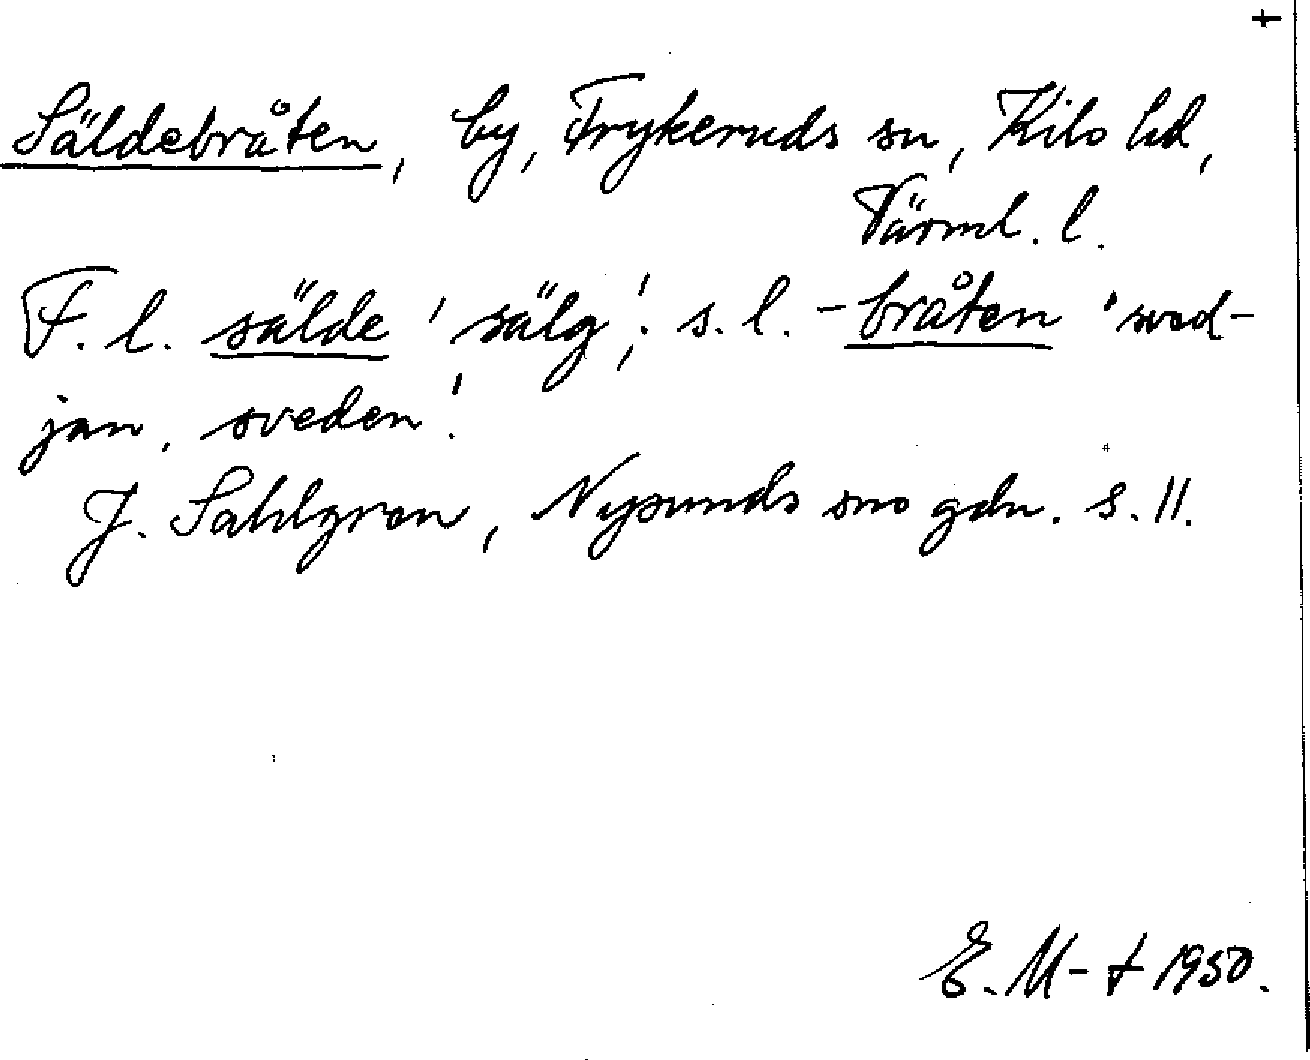 +
Säldebråten, by, Frykeruds sn, Kils hd,
Värml. l.
F. l. sälde 'sälg'; s. l. -bråten 'sved-
jan, sveden'.
J. Sahlgren, Nysunds sns gdn. s. 11.
E. M-t 1950.